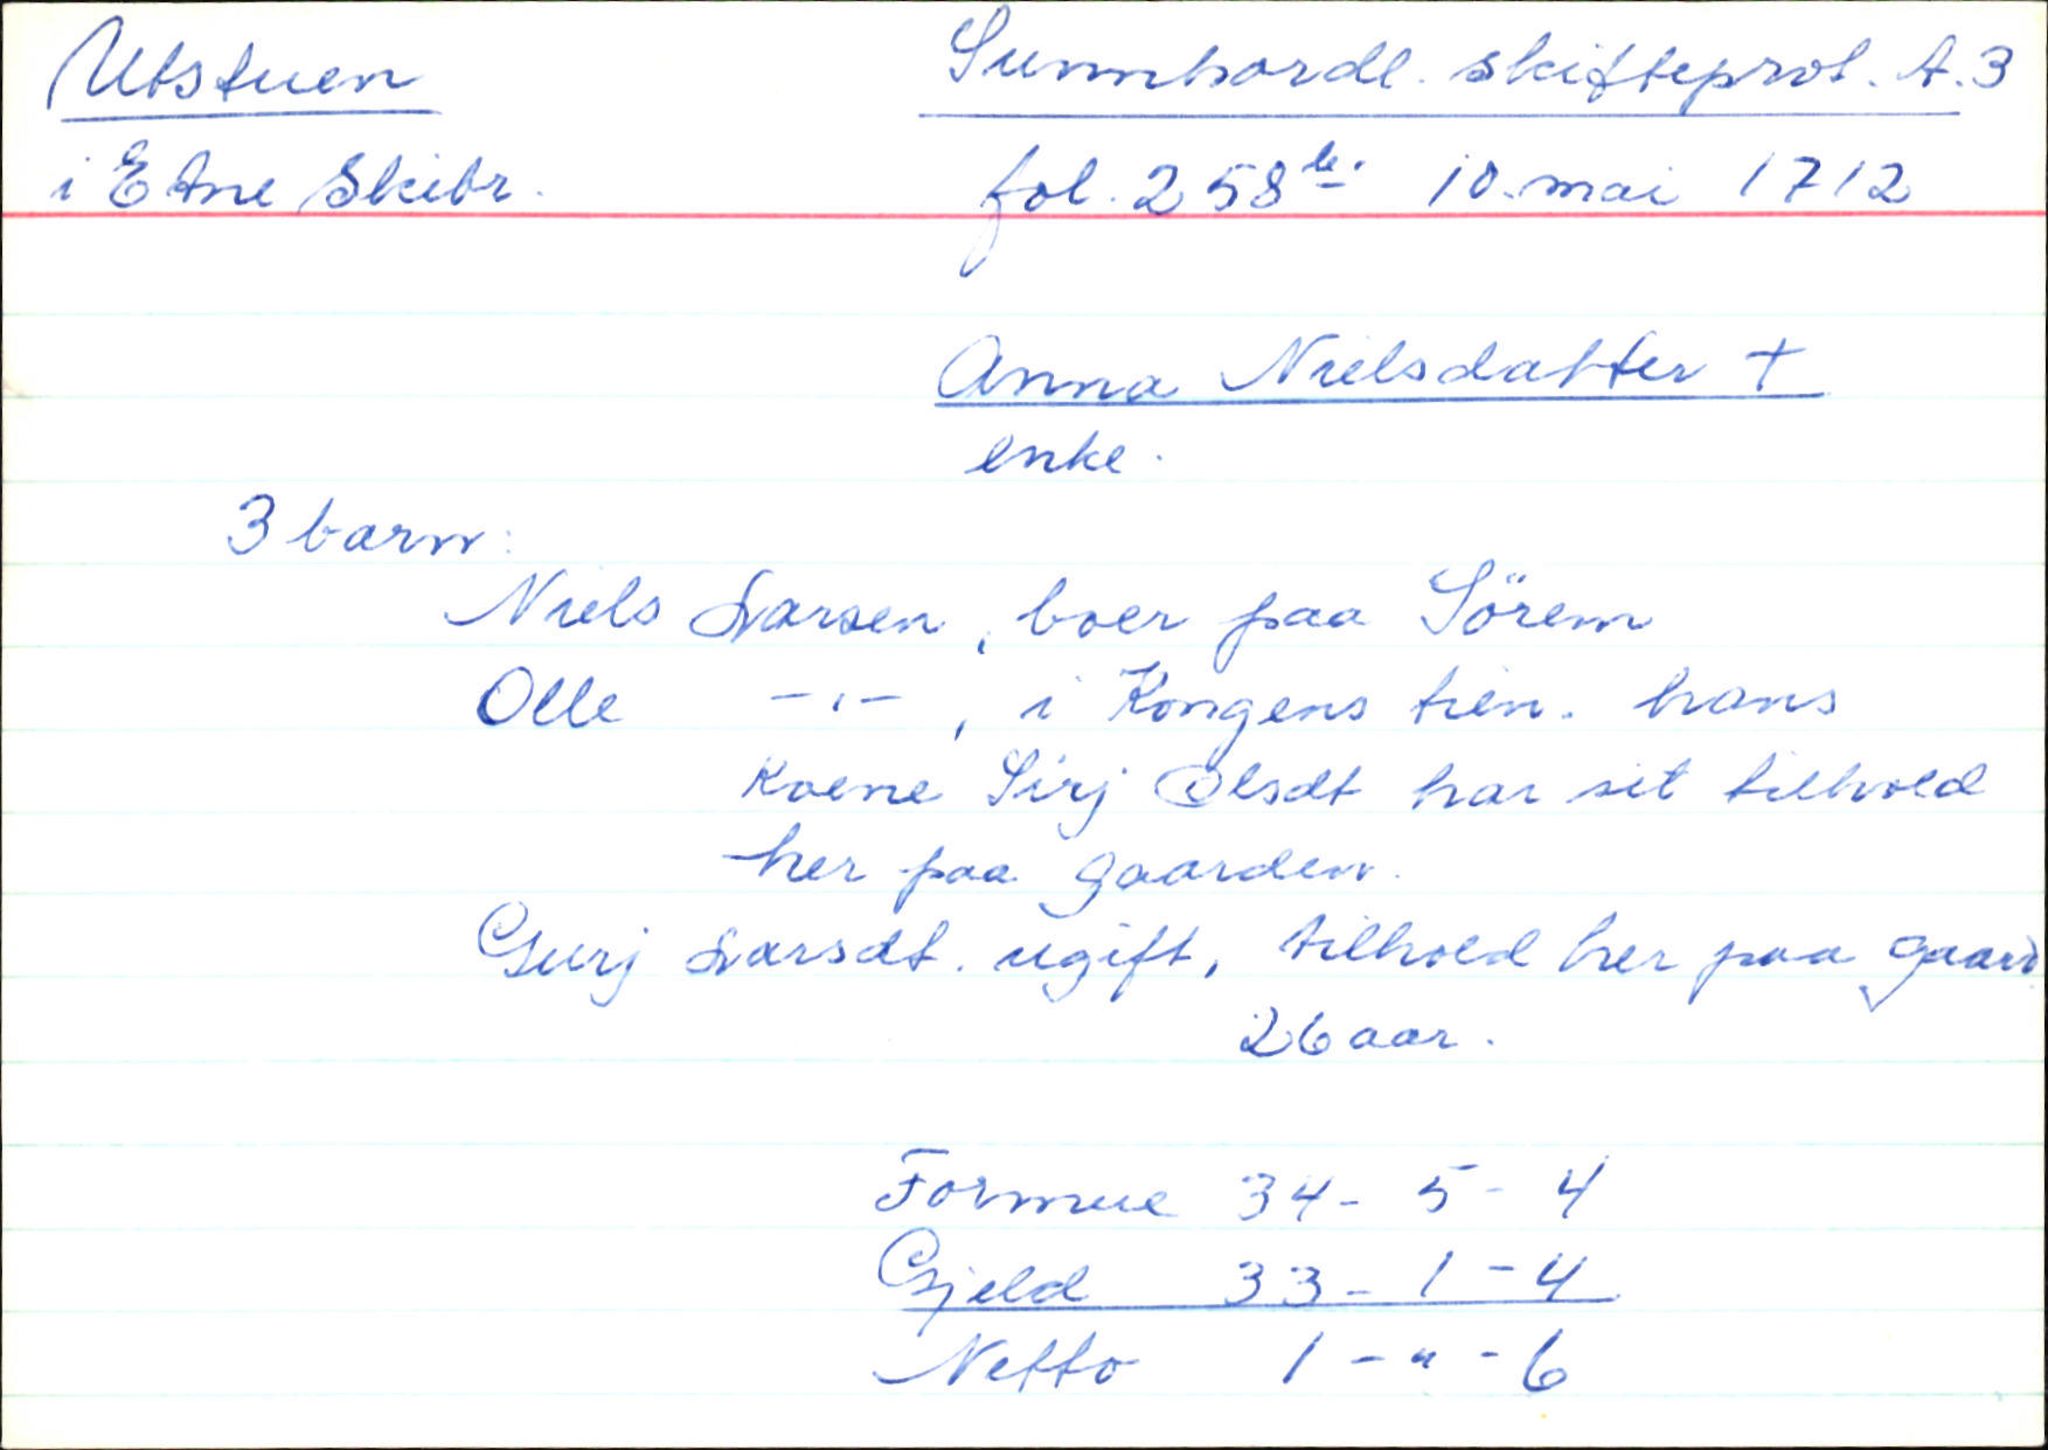 Utstuen
i Etne Skibr.
Sunnhordl. skifteprot. A.3
fol. 258 b. 10. mai 1712
Anna Nielsdatter +
enke.
3 barn:
Niels Larsen, boer paa Sörem
Olle -"-, i Kongens tien. hans
kvene Sirj Olsdt har sit tilhold
her paa gaarden.
Gurj Larsdt. ugift, tilhold her paa gaard
26 aar.
Formue 34 - 5 - 4
Gjeld 33 - 1 - 4
Netto 1 - " - 6